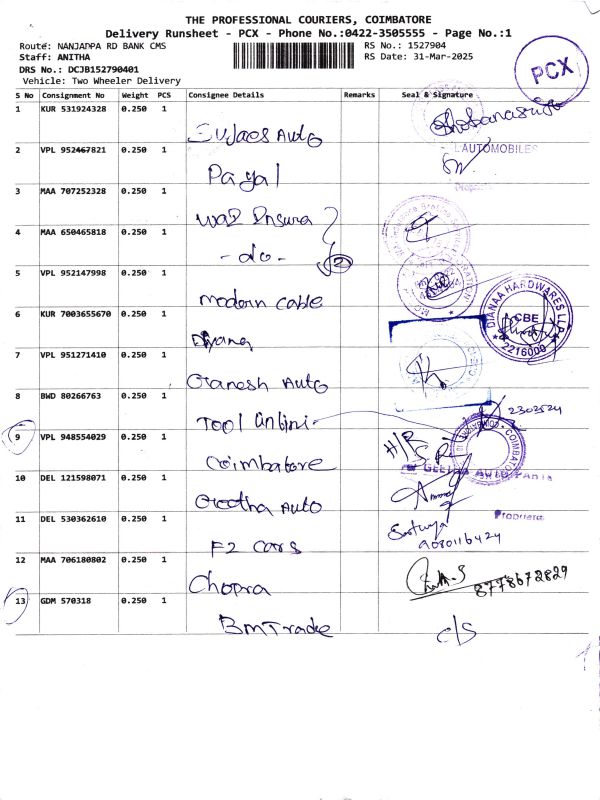 THE PROFESSIONAL COURIERS, COIMBATORE
Delivery Runsheet - PCX - Phone No.:0422-3505555 - Page No.:1
Route: NANJAPPA RD BANK CMS
RS No.: 1527904
Staff: ANITHA
RS Date: 31-Mar-2025
DRS No.: DCJB152790401
Vehicle: Two Wheeler Delivery
PCX
S No Consignment No Weight PCS Consignee Details Remarks Seal & Signature
1 KUR 531924328 0.250 1
Sujaes Auto
2 VPL 952467821 0.250 1
L AUTOMOBILES
Payal
3 MAA 707252328 0.250 1
4 MAA 650465818 0.250 1
- do - 2
5 VPL 952147998 0.250 1
modern cable
6 KUR 7003655670 0.250 1
DIANAA HARDWARES LLP
CBE
2216000
7 VPL 951271410 0.250 1
Ganesh Auto
8 BWD 80266763 0.250 1
2302524
Tool
9 VPL 948554029 0.250 1
H/R
COIMBATORE
Coimbatore
GEETHA AUTO PARTS
10 DEL 121598071 0.250 1
Geetha Auto
11 DEL 530362610 0.250 1
Proprietor
9080116424
F2 Cars
12 MAA 706180802 0.250 1
8778672829
Chopra
13 GDM 570318 0.250 1
BM Trade
C/S